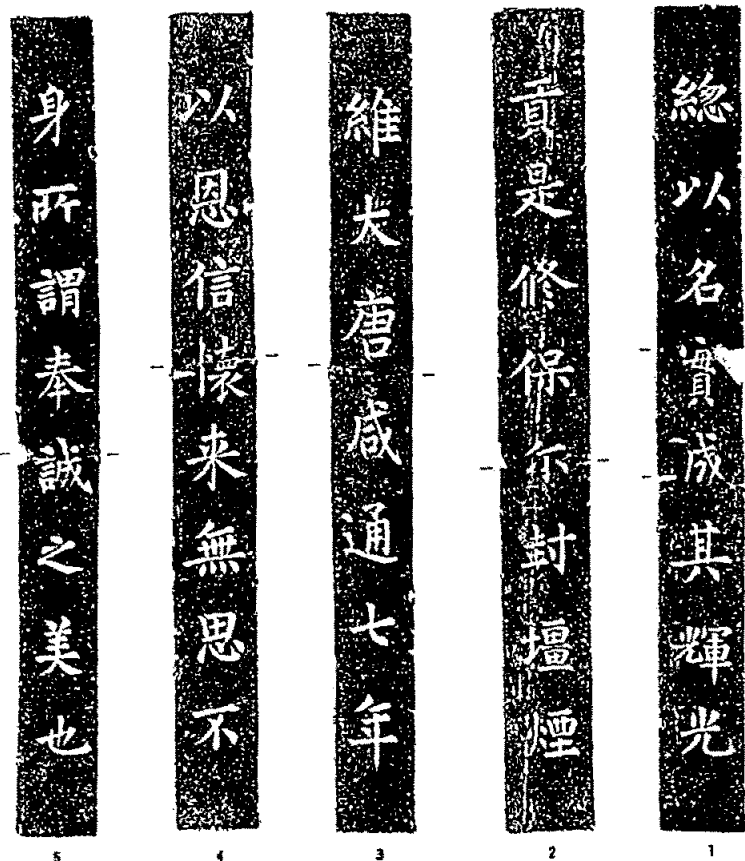 總以名實成其輝光
貢是修保尔封壃煙
維大唐咸通七年
以恩信懷来無思不
身所謂奉誠之美也
1
2
3
4
5